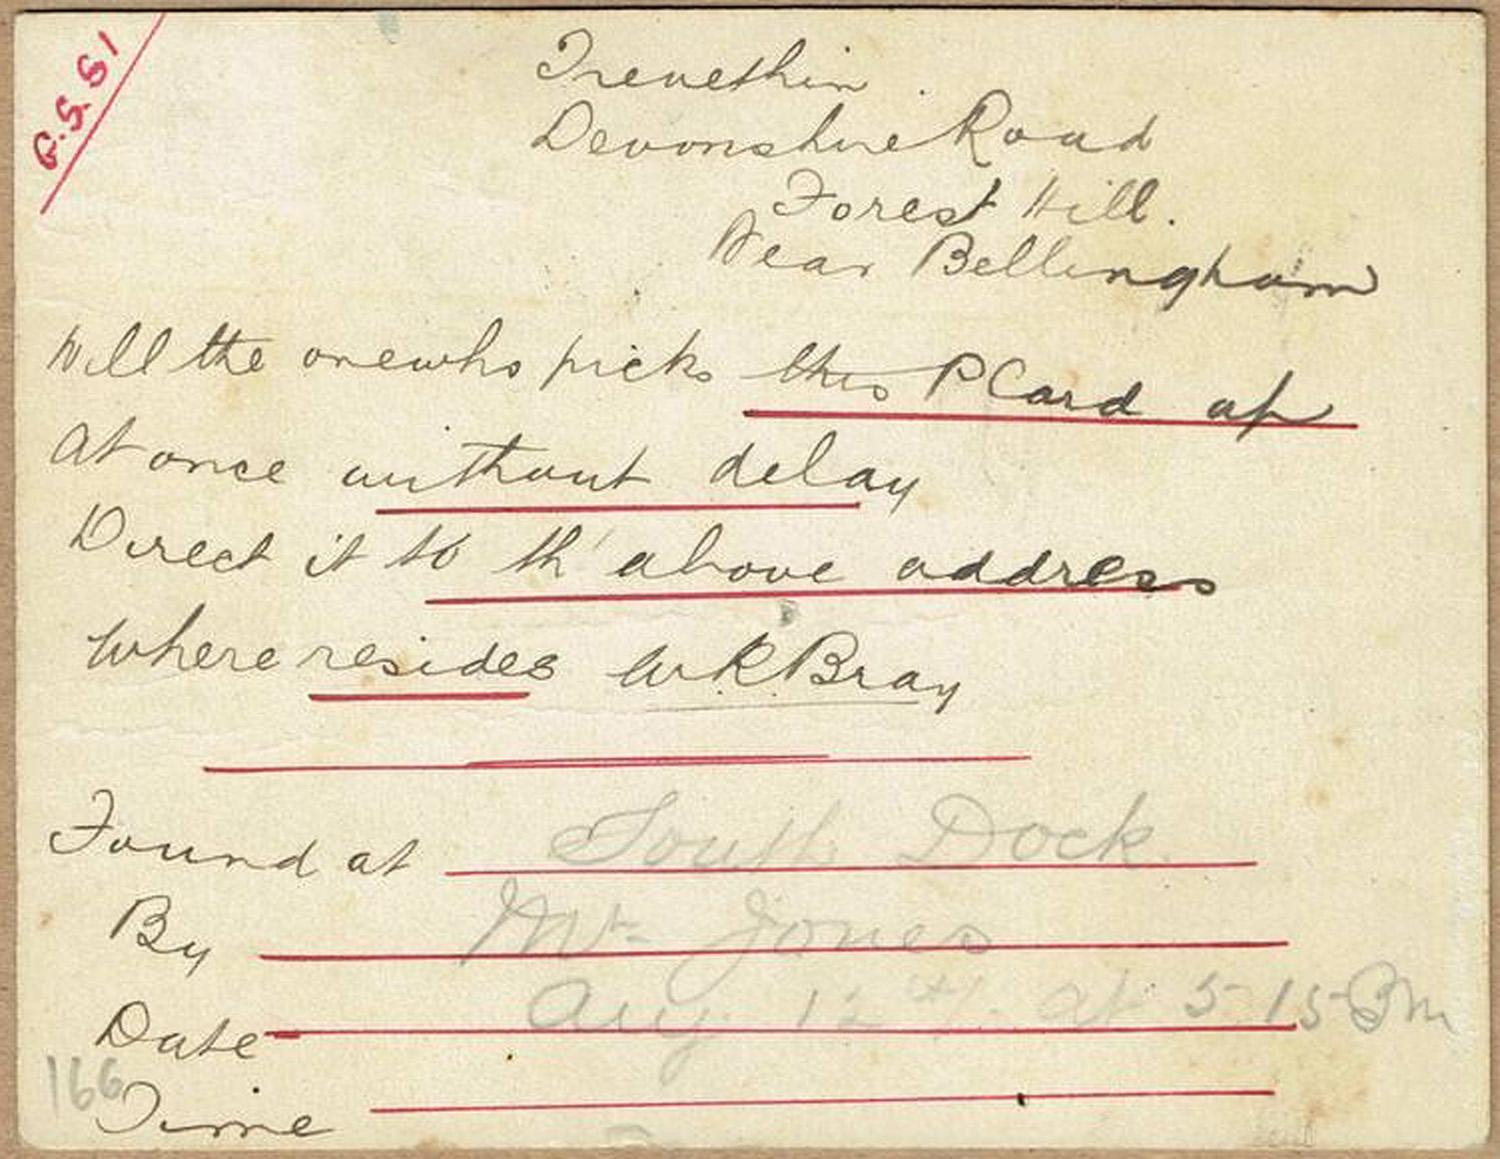 Trevethin.
Devonshire Road
Forest Hill.
Near Bellingham
Will the one who picks this P Card up
at once without delay
Direct it to th' above address
Where resides W R Bray
Found at South Dock.
By Mr Jones
Date Aug. 12th. at 5-15 Pm
166
Time